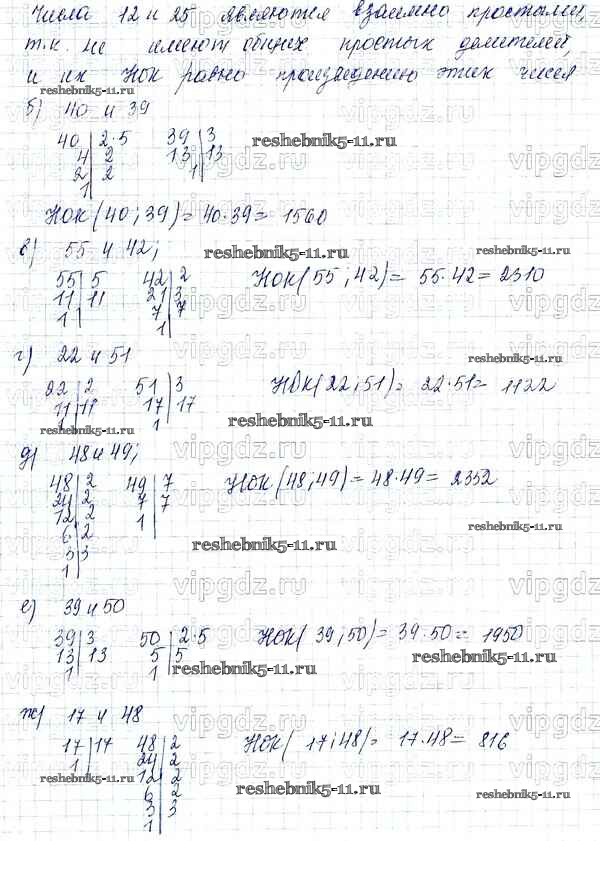 Числа 12 и 25 являются взаимно простыми,
т.к. не имеют общих простых делителей,
и их НОК равно произведению этих чисел
reshebnik5-11.ru
б) 40 и 39
40 | 2·5 39 | 3
4 | 2 13 | 13
2 | 2 1 |
1 |
reshebnik5-11.ru
НОК (40; 39) = 40·39 = 1560
в) 55 и 42;
reshebnik5-11.ru
55 | 5 42 | 2 НОК (55; 42) = 55·42 = 2310
11 | 11 21 | 3
1 | 7 | 7
1 |
г) 22 и 51
reshebnik5-11.ru
22 | 2 51 | 3 НОК (22; 51) = 22·51 = 1122
11 | 11 17 | 17
1 | 1 |
reshebnik5-11.ru
д) 48 и 49;
48 | 2 49 | 7 НОК (48; 49) = 48·49 = 2352
24 | 2 7 | 7
12 | 2 1 |
6 | 2
3 | 3
1 |
reshebnik5-11.ru
reshebnik5-11.ru
е) 39 и 50
39 | 3 50 | 2·5 НОК (39; 50) = 39·50 = 1950
13 | 13 5 | 5
1 | 1 |
reshebnik5-11.ru
reshebnik5-11.ru
ж) 17 и 48
17 | 17 48 | 2 НОК (17; 48) = 17·48 = 816
1 | 24 | 2
12 | 2
6 | 2
3 | 3
1 |
reshebnik5-11.ru
reshebnik5-11.ru
reshebnik5-11.ru
vipgdz.ru